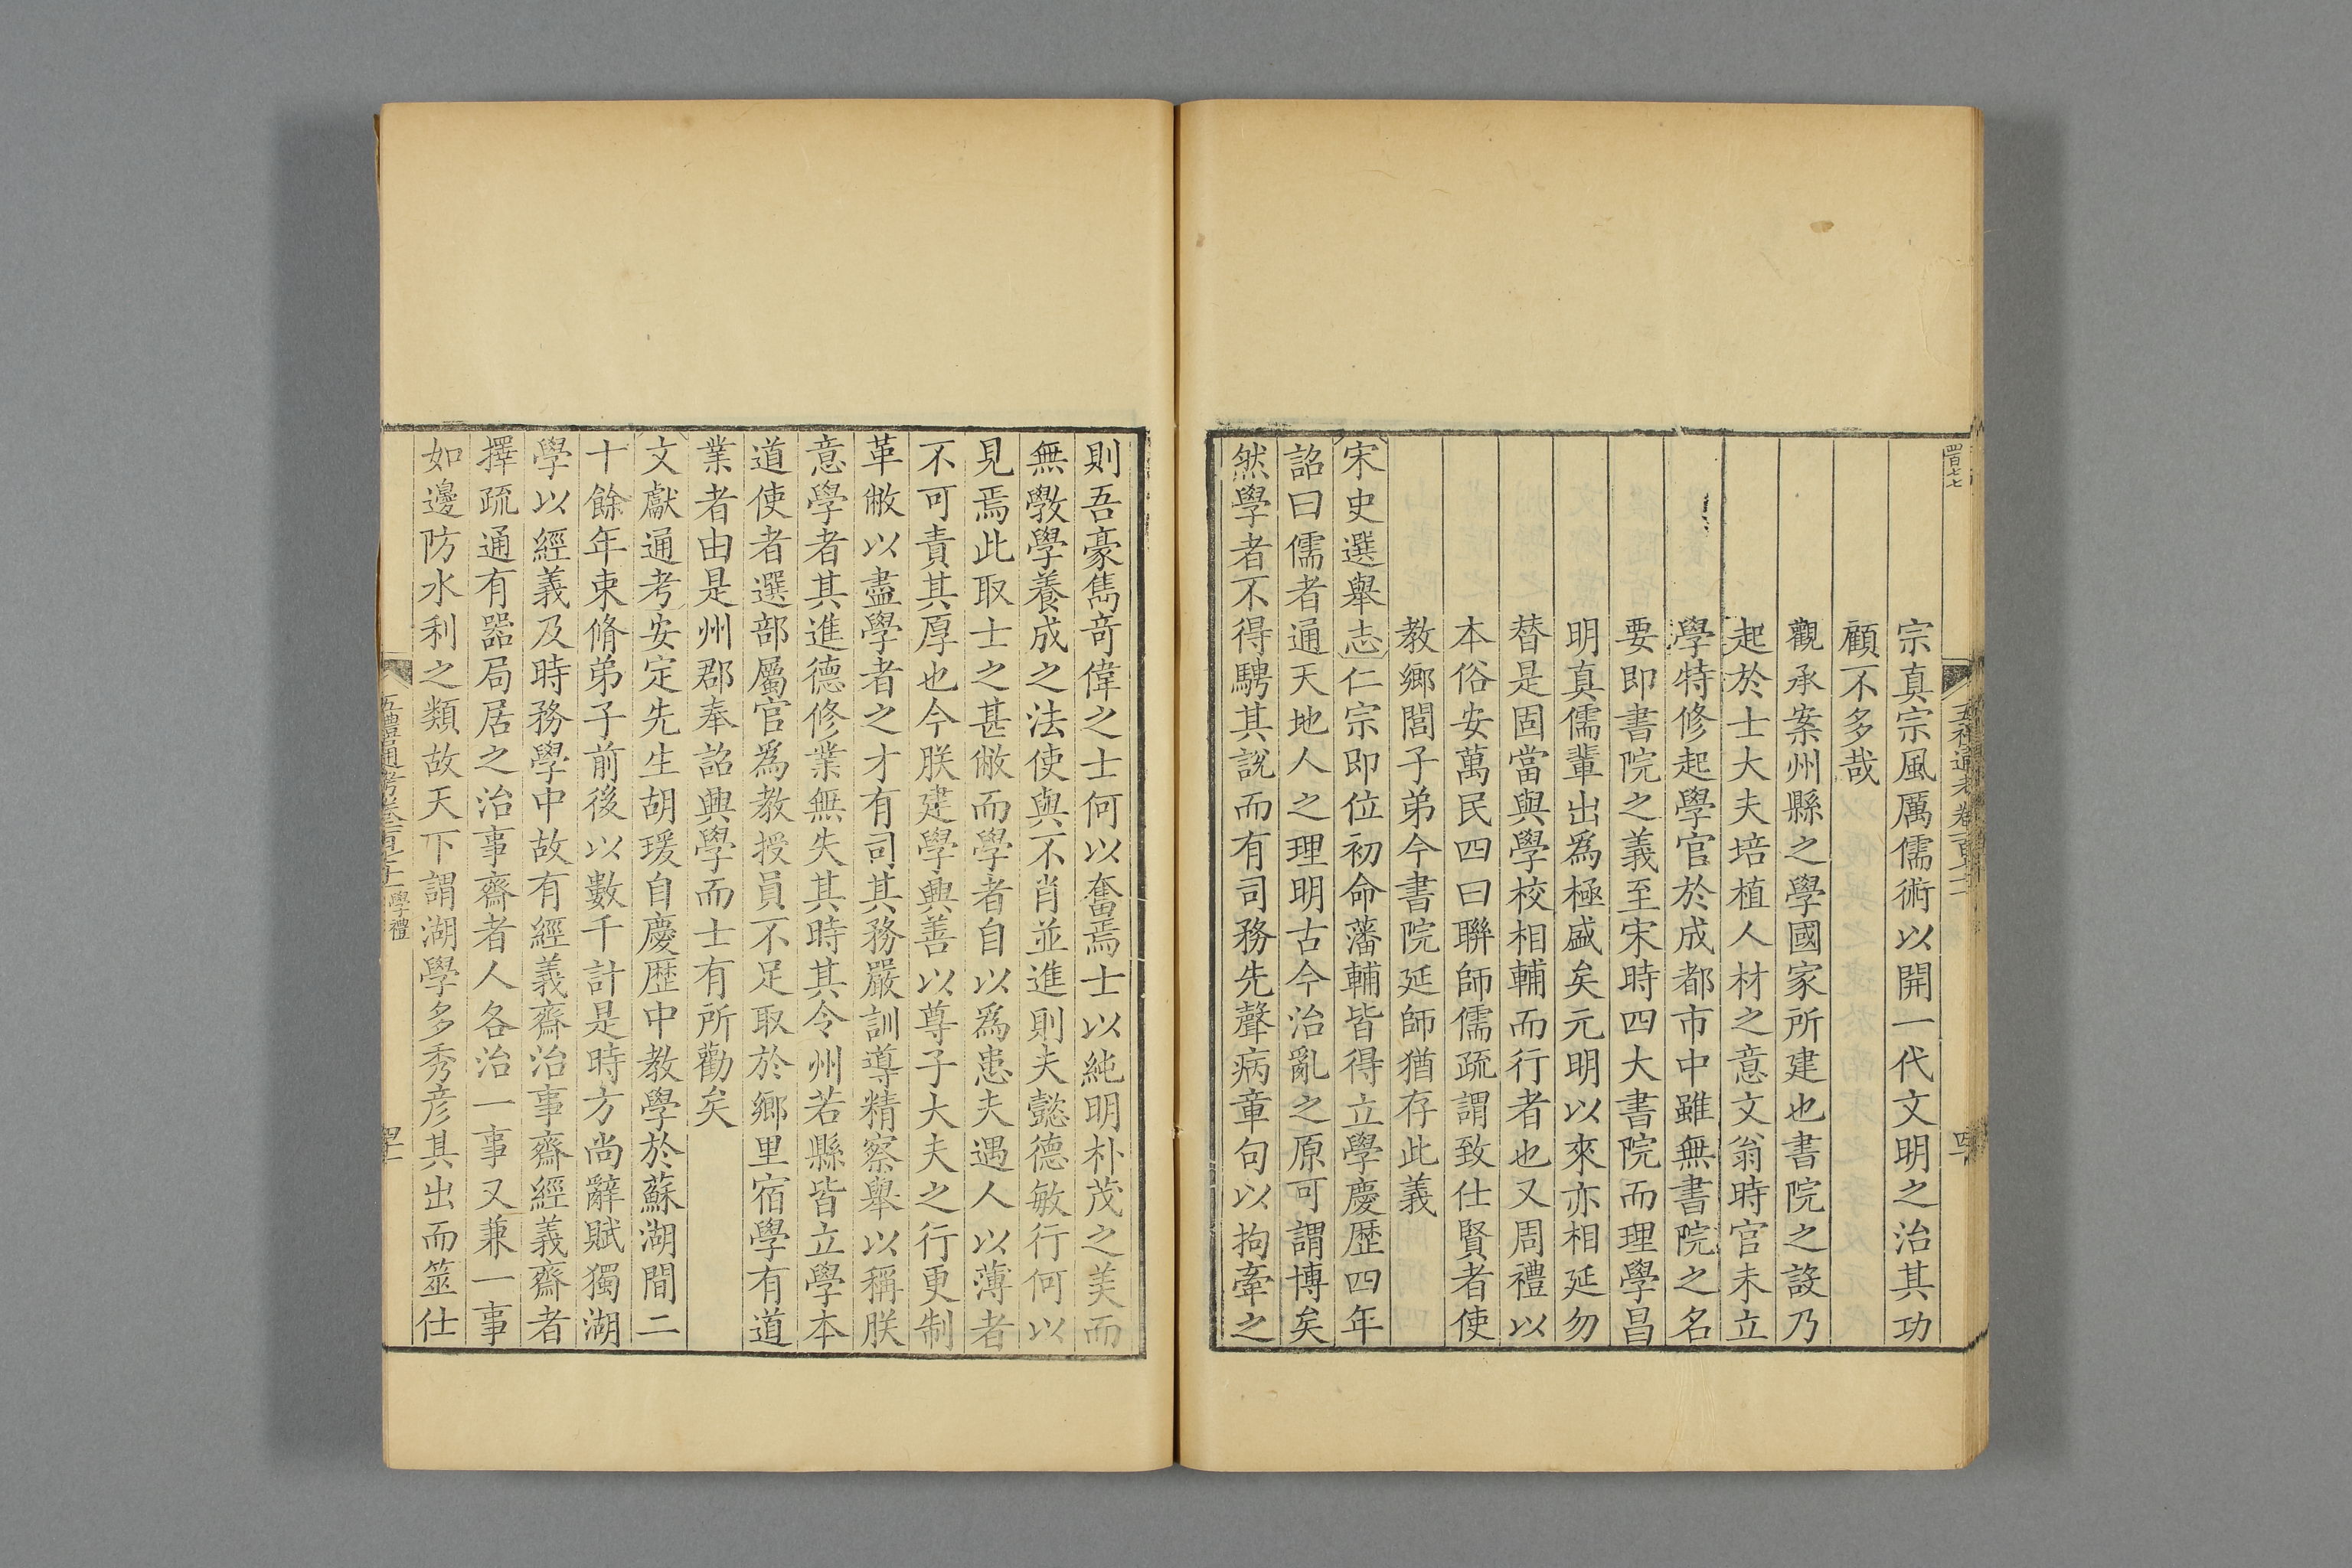 宗真宗風厲儒術以開一代文明之治其功
顧不多哉
觀承案州縣之學國家所建也書院之設乃
起於士大夫培植人材之意文翁時官未立
學特修起學官於成都市中雖無書院之名
要即書院之義至宋時四大書院而理學昌
明真儒輩出爲極盛矣元明以來亦相延勿
替是固當與學校相輔而行者也又周禮以
本俗安萬民四曰聯師儒疏謂致仕賢者使
教鄉閭子弟今書院延師猶存此義
宋史選舉志仁宗即位初命藩輔皆得立學慶歷四年
詔曰儒者通天地人之理明古今治亂之原可謂博矣
然學者不得騁其說而有司務先聲病章句以拘牽之
則吾豪雋竒偉之士何以奮焉士以純明朴茂之美而
無斆學養成之法使與不肖並進則夫懿德敏行何以
見焉此取士之甚敝而學者自以爲患夫遇人以薄者
不可責其厚也今朕建學興善以尊子大夫之行更制
革敝以盡學者之才有司其務嚴訓導精察舉以稱朕
意學者其進德修業無失其時其令州若縣皆立學本
道使者選部屬官爲教授員不足取於鄉里宿學有道
業者由是州郡奉詔興學而士有所勸矣
文獻通考安定先生胡瑗自慶歷中教學於蘇湖間二
十餘年束脩弟子前後以數千計是時方尚辭賦獨湖
學以經義及時務學中故有經義齋治事齋經義齋者
擇疏通有器局居之治事齋者人各治一事又兼一事
如邊防水利之類故天下謂湖學多秀彦其出而筮仕
五禮通考卷 學禮